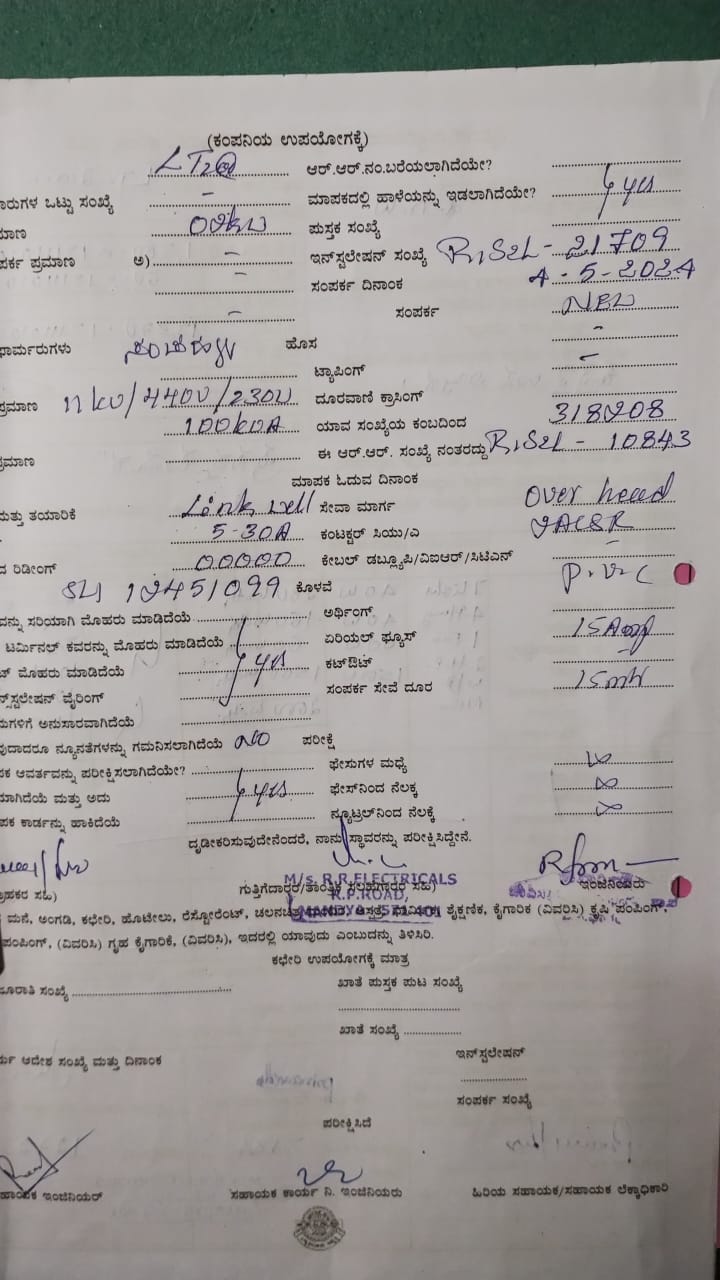 (ಕಂಪನಿಯ ಉಪಯೋಗಕ್ಕೆ)
LT2@ ಆರ್.ಆರ್.ನಂ.ಬರೆಯಲಾಗಿದೆಯೇ?
ಾರುಗಳ ಒಟ್ಟು ಸಂಖ್ಯೆ - ಮಾಪಕದಲ್ಲಿ ಹಾಳೆಯನ್ನು ಇಡಲಾಗಿದೆಯೇ? yes
ಮಾಣ ಪುಸ್ತಕ ಸಂಖ್ಯೆ
ಪರ್ಕ ಪ್ರಮಾಣ ಅ) - ಇನ್‌ಸ್ಟಲೇಷನ್ ಸಂಖ್ಯೆ 21709
- ಸಂಪರ್ಕ ದಿನಾಂಕ 4-5-2024
- ಸಂಪರ್ಕ NEW
ಫಾರ್ಮರುಗಳು ಹೊಸ -
ಟ್ಯಾಪಿಂಗ್ -
ಪ್ರಮಾಣ 11kv/440v/230v ದೂರವಾಣಿ ಕ್ರಾಸಿಂಗ್
100kVA ಯಾವ ಸಂಖ್ಯೆಯ ಕಂಬದಿಂದ
ಪ್ರಮಾಣ ಈ ಆರ್.ಆರ್. ಸಂಖ್ಯೆ ನಂತರದ್ದು 10843
ಮಾಪಕ ಓದುವ ದಿನಾಂಕ
ಮತ್ತು ತಯಾರಿಕೆ Link well ಸೇವಾ ಮಾರ್ಗ Over head
5-30A ಕಂಟಕ್ಟರ್ ಸಿಯು/ಎ
ದ ರಿಡೀಂಗ್ 00000 ಕೇಬಲ್ ಡಬ್ಲ್ಯೂಪಿ/ವಿಐಆರ್/ಸಿಟಿಎನ್ -
ಕೊಳವೆ P.V.C
ವನ್ನು ಸರಿಯಾಗಿ ಮೊಹರು ಮಾಡಿದೆಯೆ ಅರ್ಥಿಂಗ್
ಟರ್ಮಿನಲ್ ಕವರನ್ನು ಮೊಹರು ಮಾಡಿದೆಯೆ ಏರಿಯಲ್ ಫ್ಯೂಸ್ 15Amp
ಟ್ ಮೊಹರು ಮಾಡಿದೆಯೆ yes ಕಟ್‌ಔಟ್ -
ನ್‌ಸ್ಟಲೇಷನ್ ವೈರಿಂಗ್ ಸಂಪರ್ಕ ಸೇವೆ ದೂರ 15mtr
ಮಗಳಿಗೆ ಅನುಸಾರವಾಗಿದೆಯೆ
ವುದಾದರೂ ನ್ಯೂನತೆಗಳನ್ನು ಗಮನಿಸಲಾಗಿದೆಯೆ NO ಪರೀಕ್ಷೆ
ಪಕ ಆವರ್ತವನ್ನು ಪರೀಕ್ಷಿಸಲಾಗಿದೆಯೇ? ಫೇಸುಗಳ ಮಧ್ಯೆ ∞
ಮಾಗಿದೆಯೆ ಮತ್ತು ಅದು yes ಫೇಸ್‌ನಿಂದ ನೆಲಕ್ಕೆ ∞
ಪಕ ಕಾರ್ಡನ್ನು ಹಾಕಿದೆಯೆ ನ್ಯೂಟ್ರಲ್‌ನಿಂದ ನೆಲಕ್ಕೆ ∞
ದೃಢೀಕರಿಸುವುದೇನೆಂದರೆ, ನಾನು ಸ್ಥಾವರನ್ನು ಪರೀಕ್ಷಿಸಿದ್ದೇನೆ.
M/s. R.R.ELECTRICALS
್ರಾಹಕರ ಸಹಿ) ಗುತ್ತಿಗೆದಾರರ/ತಾಂತ್ರಿಕ ಸಲಹಗಾರರ ಸಹಿ) ಇಂಜಿನಿಯರು
R.P.ROAD,
MANDYA-571 401
ಮನೆ, ಅಂಗಡಿ, ಕಛೇರಿ, ಹೋಟೇಲು, ರೆಸ್ಟೋರೆಂಟ್, ಶೈಕ್ಷಣಿಕ, ಕೈಗಾರಿಕೆ (ವಿವರಿಸಿ) ಕೃಷಿ ಪಂಪಿಂಗ್,
ಪಂಪಿಂಗ್, (ವಿವರಿಸಿ) ಗೃಹ ಕೈಗಾರಿಕೆ, (ವಿವರಿಸಿ), ಇದರಲ್ಲಿ ಯಾವುದು ಎಂಬುದನ್ನು ತಿಳಿಸಿರಿ.
ಕಛೇರಿ ಉಪಯೋಗಕ್ಕೆ ಮಾತ್ರ
ಸಂಖ್ಯೆ ಖಾತೆ ಪುಸ್ತಕ ಪುಟ ಸಂಖ್ಯೆ
ಖಾತೆ ಸಂಖ್ಯೆ
ರ್ಯ ಆದೇಶ ಸಂಖ್ಯೆ ಮತ್ತು ದಿನಾಂಕ ಇನ್‌ಸ್ಟಲೇಷನ್
ಸಂಪರ್ಕ ಸಂಖ್ಯೆ
ಪರೀಕ್ಷಿಸಿದೆ
ಹಾಯಕ ಇಂಜಿನಿಯರ್ ಸಹಾಯಕ ಕಾರ್ಯ ನಿ. ಇಂಜಿನಿಯರು ಹಿರಿಯ ಸಹಾಯಕ/ಸಹಾಯಕ ಲೆಕ್ಕಾಧಿಕಾರಿ